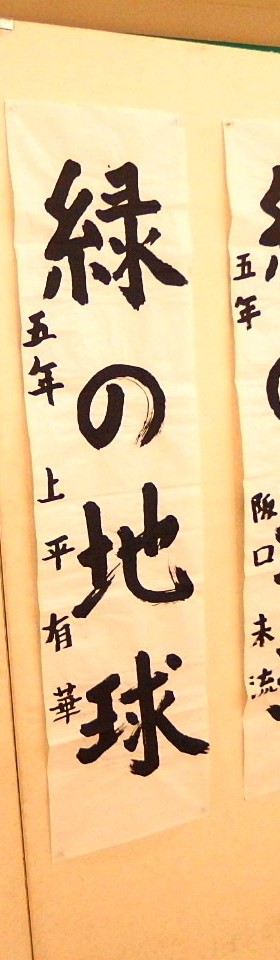 緑の地球
五年 上平有華
五年 阪口未流